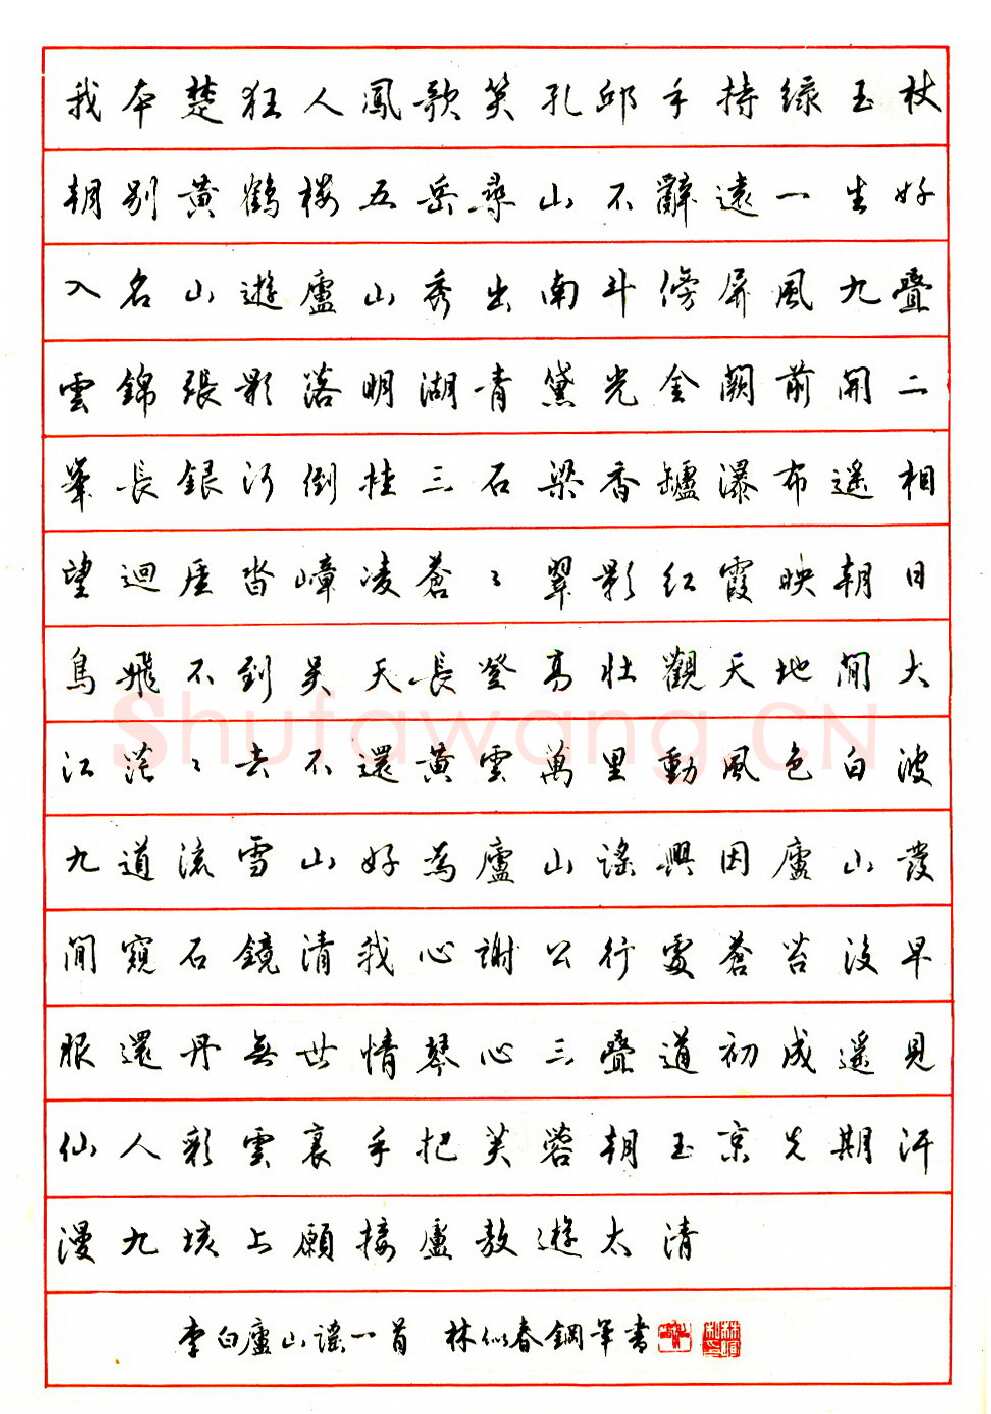 我本楚狂人鳳歌笑孔邱手持綠玉杖
朝別黃鶴樓五岳尋山不辭遠一生好
入名山遊廬山秀出南斗傍屏風九疊
雲錦張影落明湖青黛光金闕前開二
峯長銀河倒挂三石梁香罏瀑布遥相
望迴崖沓嶂凌蒼〻翠影紅霞映朝日
鳥飛不到吴天長登高壯觀天地間大
江茫〻去不還黃雲萬里動風色白波
九道流雪山好為廬山謠興因廬山發
閒窺石鏡清我心謝公行處蒼苔沒早
服還丹無世情琴心三疊道初成遥見
仙人彩雲裏手把芙蓉朝玉京先期汗
漫九垓上願接盧敖遊太清
李白廬山謠一首 林似春鋼筆書
Shufawang.CN